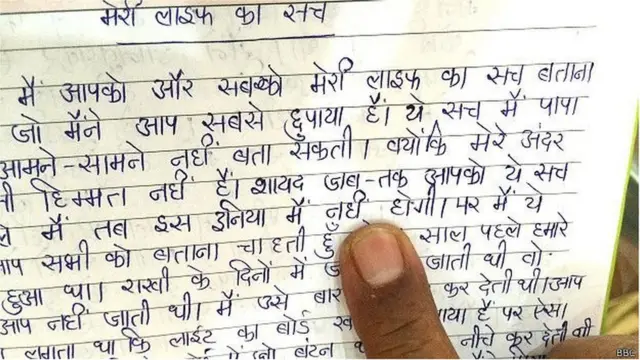 मेरी लाइफ का सच
मैं आपको और सबको मेरी लाइफ का सच बताना
जो मैंने आप सबसे छुपाया है। ये सच मैं पापा
आमने-सामने नहीं बता सकती। क्योंकि मेरे अंदर
हिम्मत नहीं हैं। शायद जब-तक आपको ये सच
मैं तब इस दुनिया में नहीं होगी। पर मैं ये
आप सभी को बताना चाहती साल पहले हमारे
हुआ था। राखी के दिनों में जाती थी वो
आप नहीं जाती थी। मैं उसे बार कर देती थी। आप
लगता था कि लाईट का बोर्ड है पर ऐसा
बटन नीचे कर देती थी
BBC